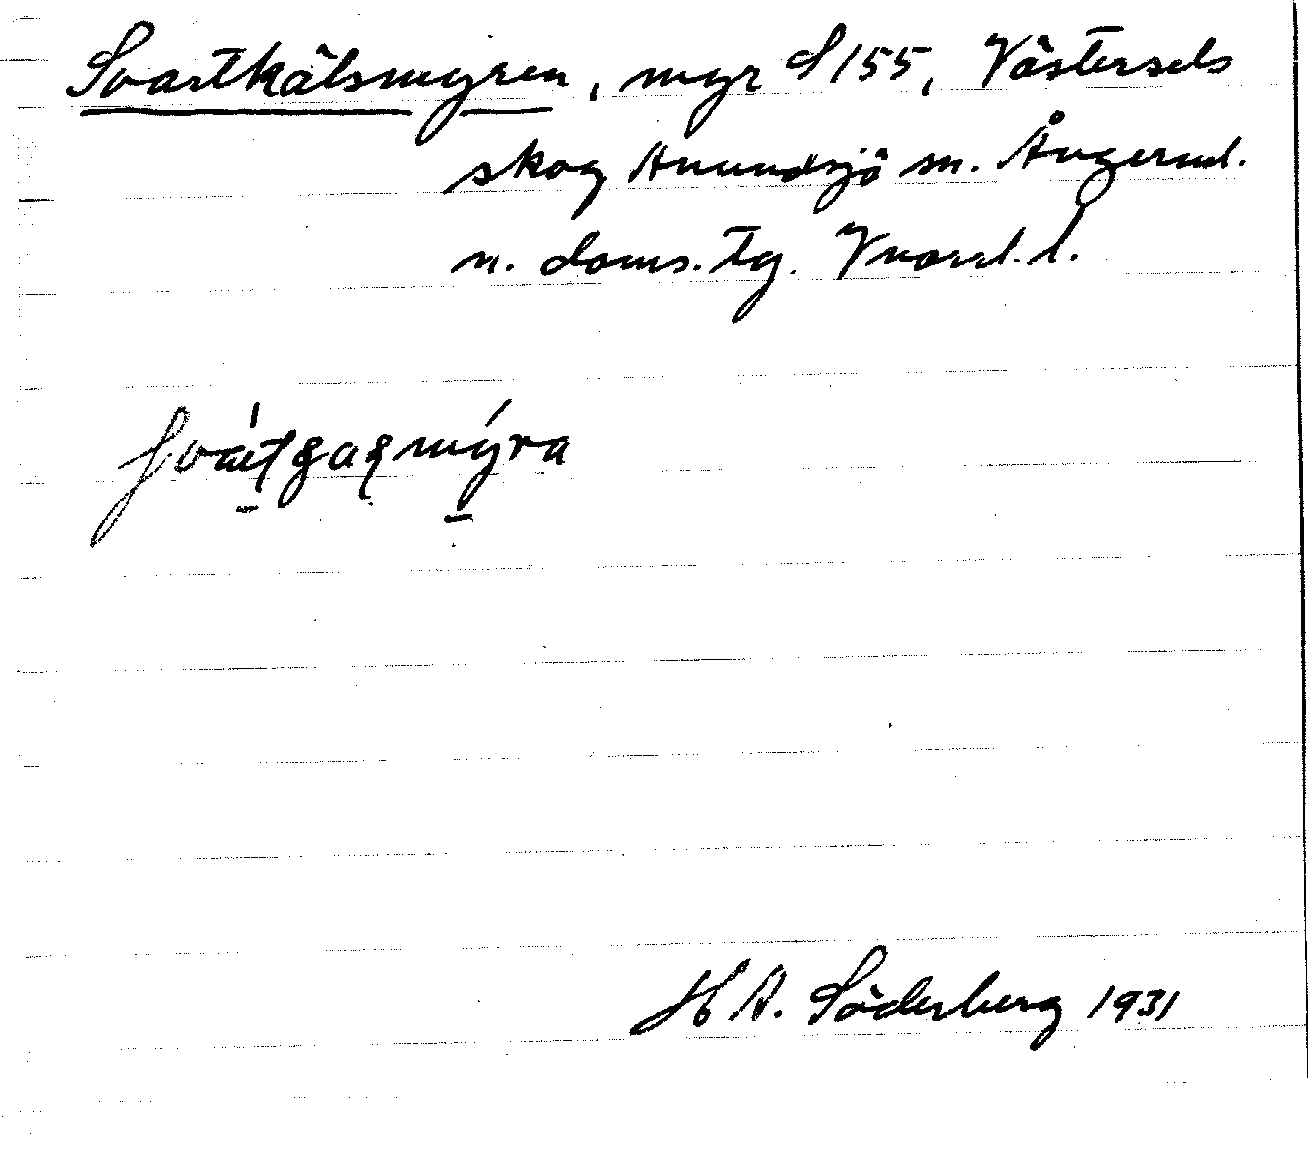 Svartkälsmyren, myr S 155, Västersels
skog Anundsjö sn. Ångerml.
n. doms. tg. Vnorrl. l.
H A. Söderberg 1931